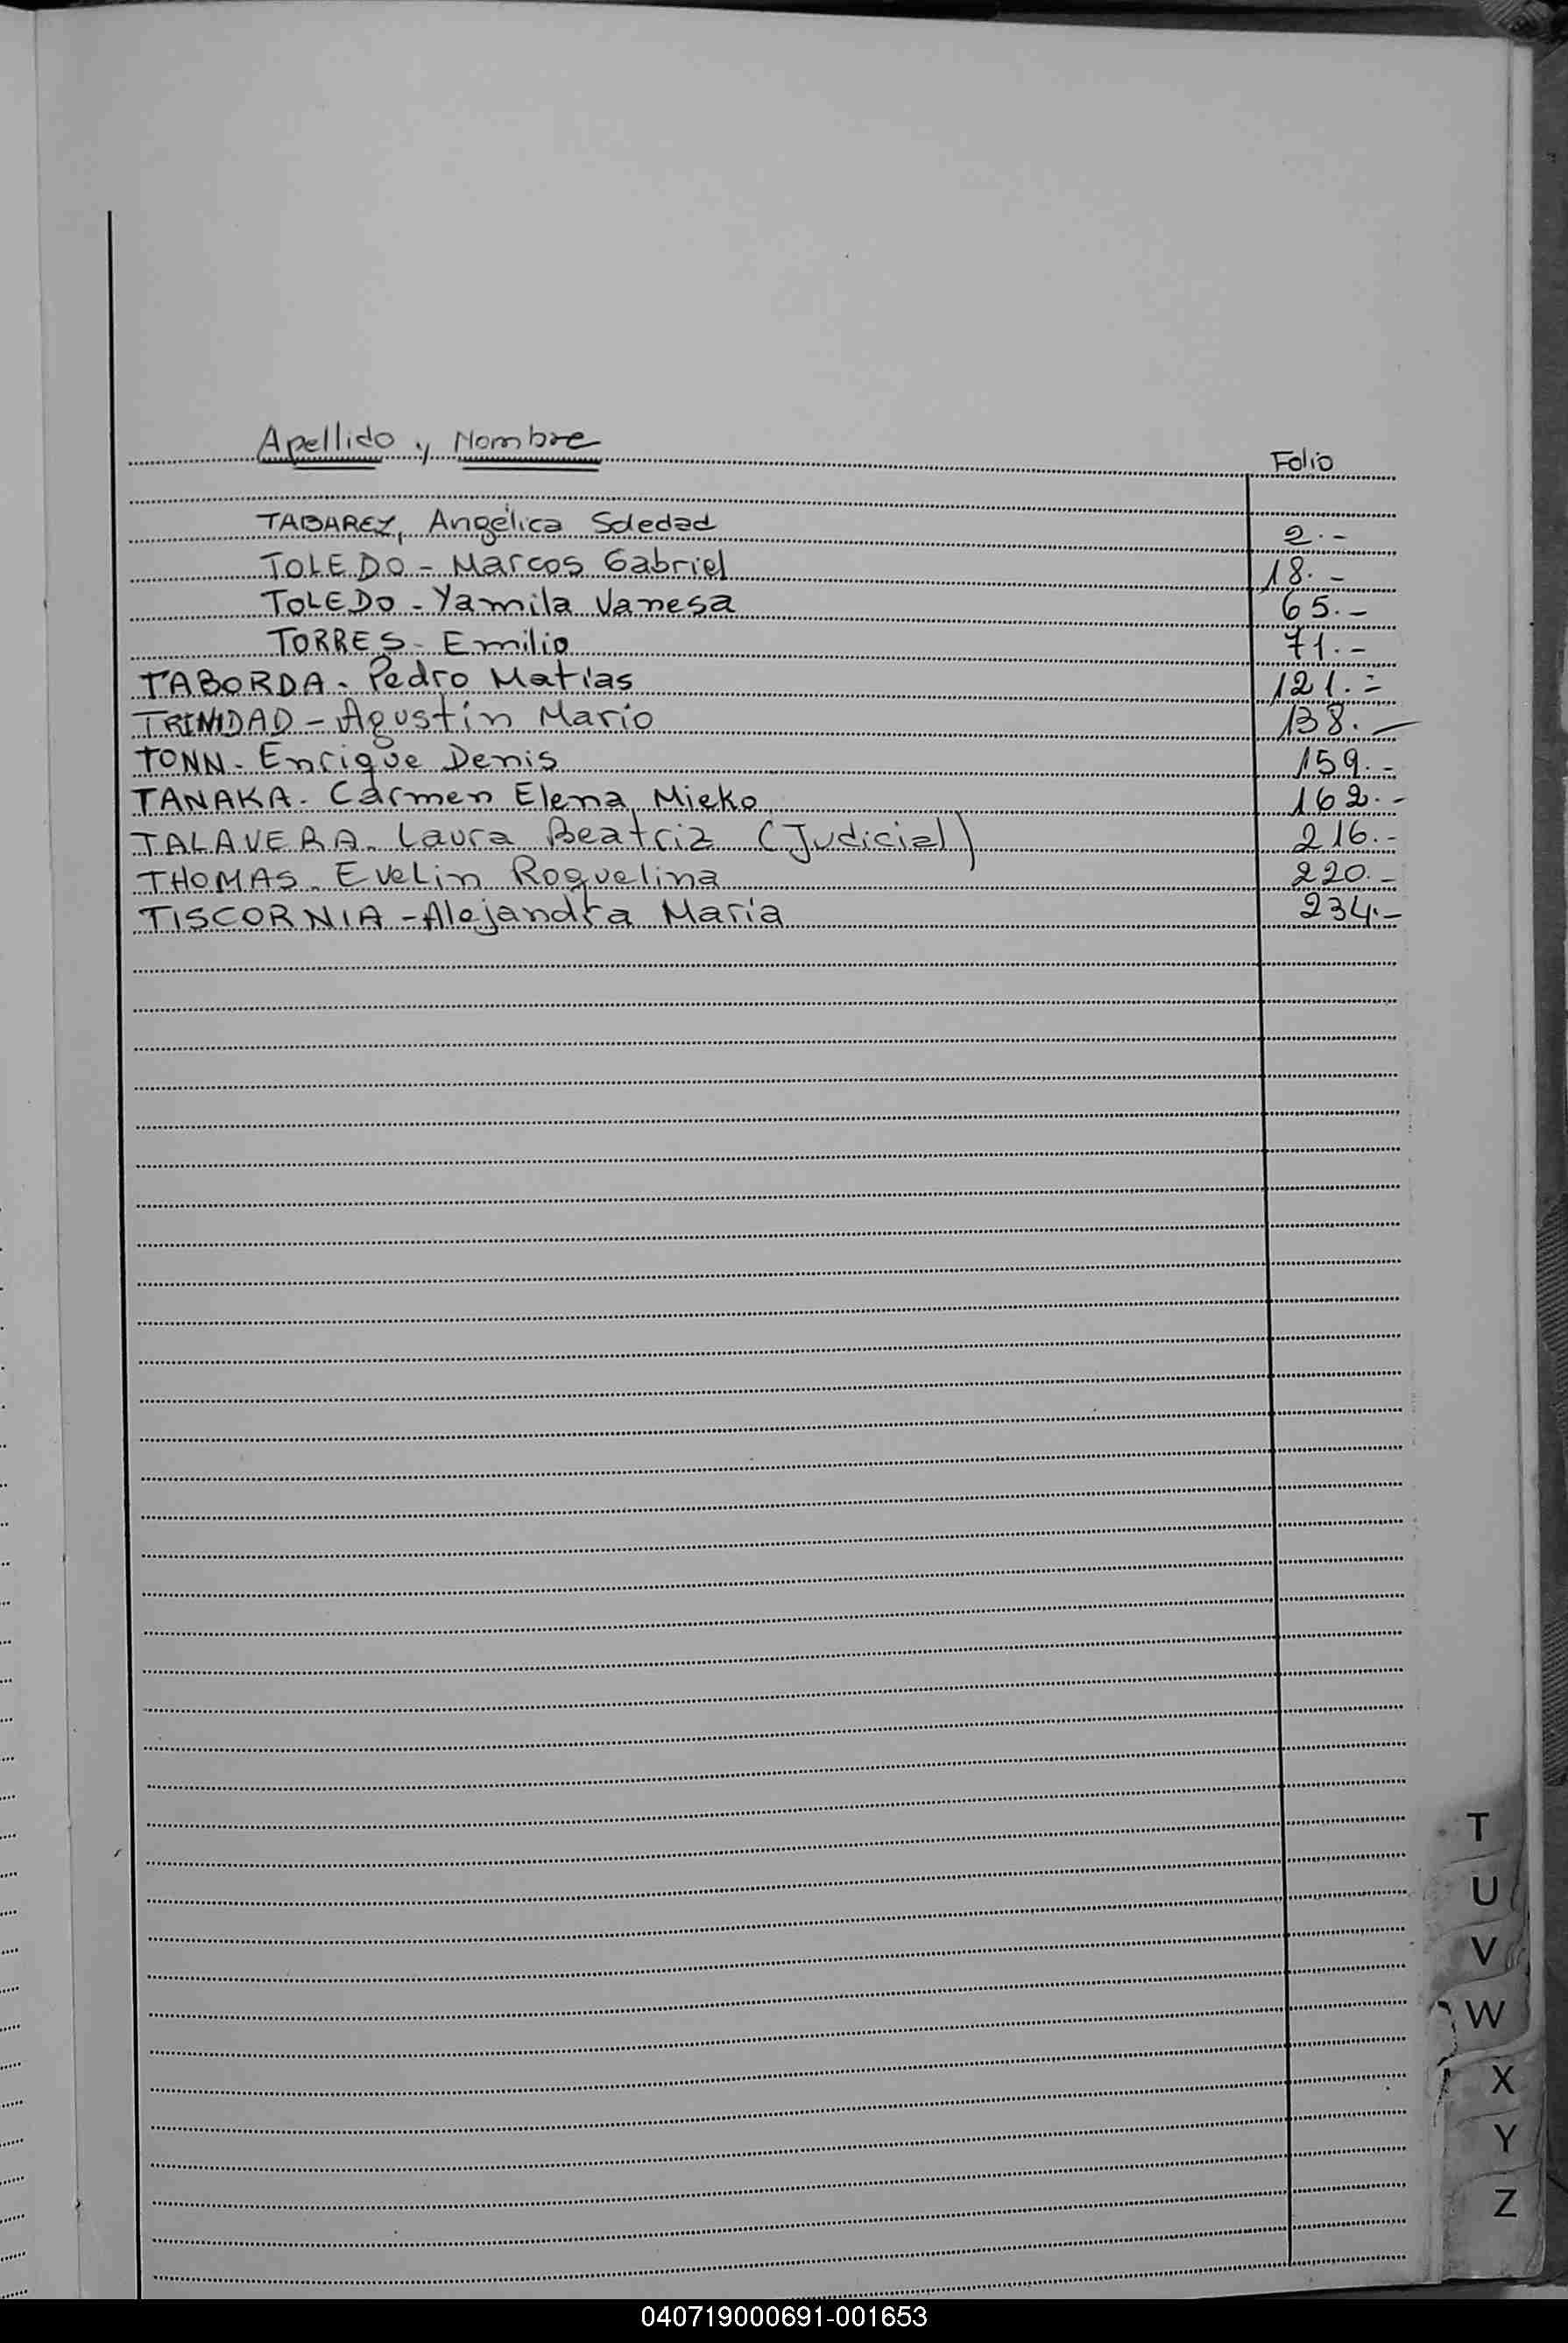 Apellido y Nombre Folio
TABAREZ, Angélica Soledad 2.-
TOLEDO - Marcos Gabriel 18.-
TOLEDO - Yamila Vanesa 65.-
TORRES - Emilio 71.-
TABORDA - Pedro Matías 121.=
TRINIDAD - Agustín Mario 138.-
TONN - Enrique Denis 159.-
TANAKA - Carmen Elena Mieko 162.-
TALAVERA - Laura Beatriz (Judicial) 216.-
THOMAS - Evelin Roquelina 220.-
TISCORNIA - Alejandra María 234.-
T
U
V
W
X
Y
Z
040719000691-001653